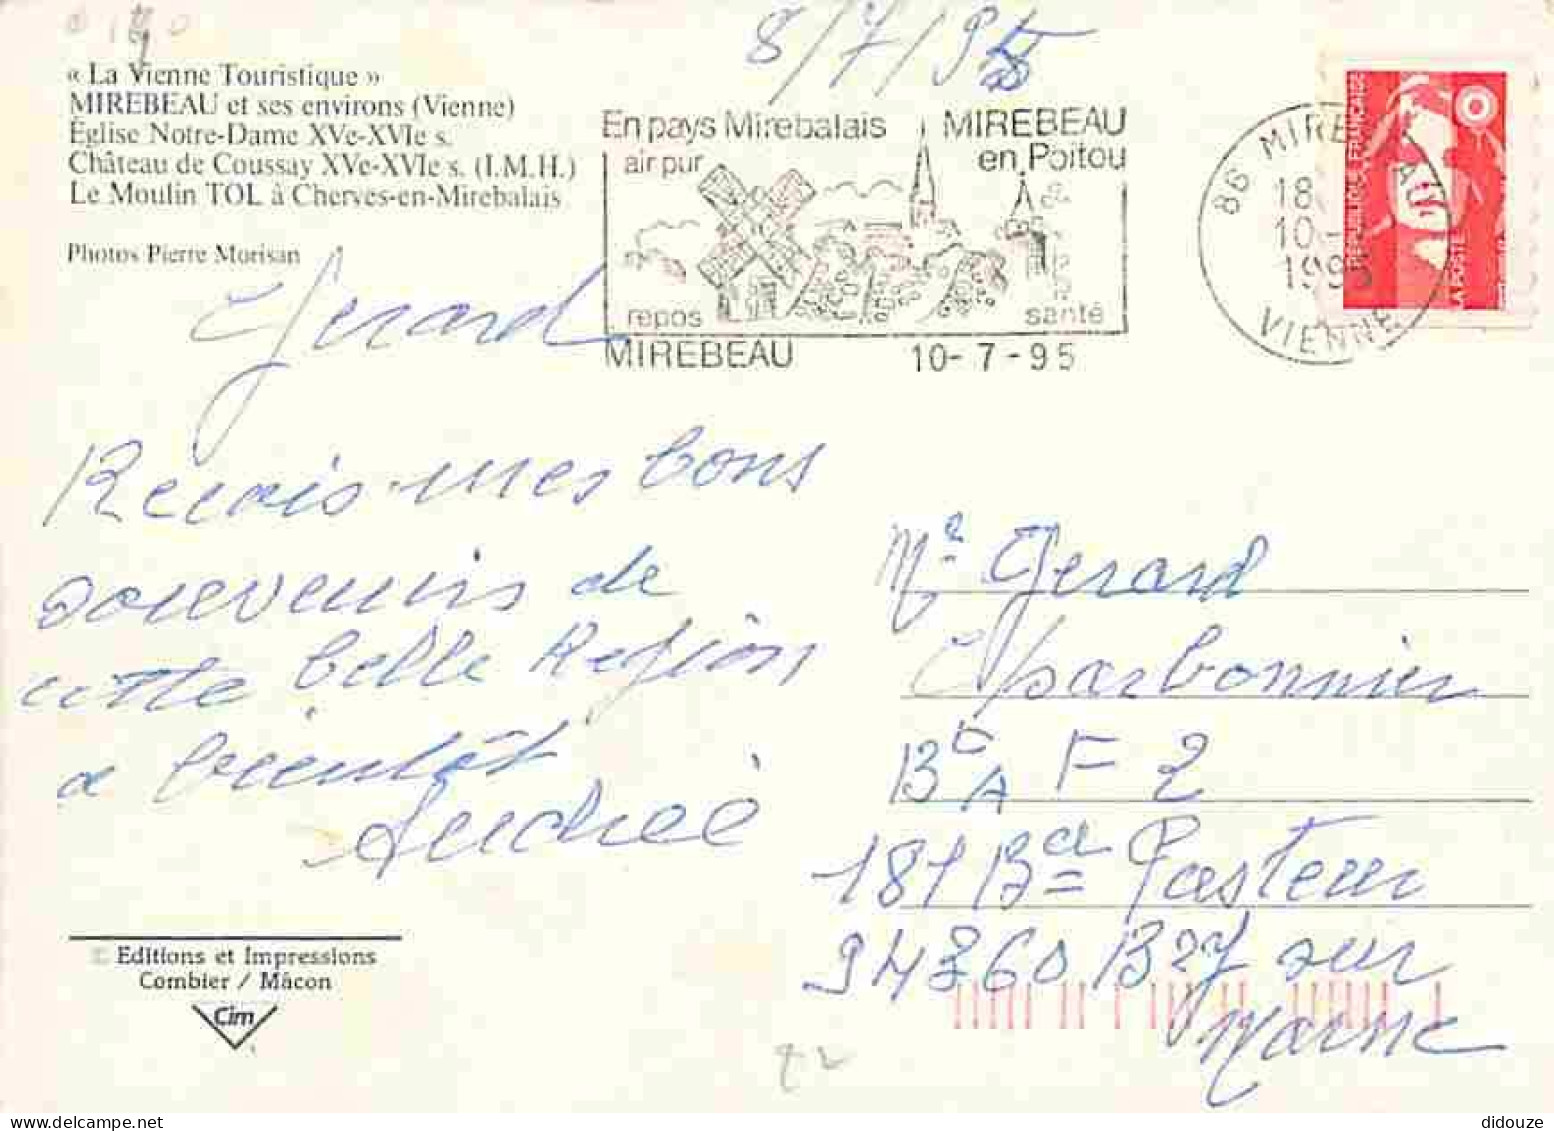 8/7/95
« La Vienne Touristique »
MIREBEAU et ses environs (Vienne)
Église Notre-Dame XVe-XVIe s.
Château de Coussay XVe-XVIe s. (I.M.H.)
Le Moulin TOL à Cherves-en-Mirebalais
Photos Pierre Morisan
En pays Mirebalais MIREBEAU
air pur en Poitou
repos santé
MIREBEAU 10-7-95
86 MIREBEAU
18
10-
1995
VIENNE
REPUBLIQUE FRANÇAISE
LA POSTE
Gerard
Recois mes bons
souvenirs de
cette belle Region
a bientôt
Andreé
Mr Gerard
Charbonnier
Bt A F 2
181 Bd Pasteur
94360 Bry sur
Marne
© Editions et Impressions
Combier / Mâcon
Cim
72
didouze